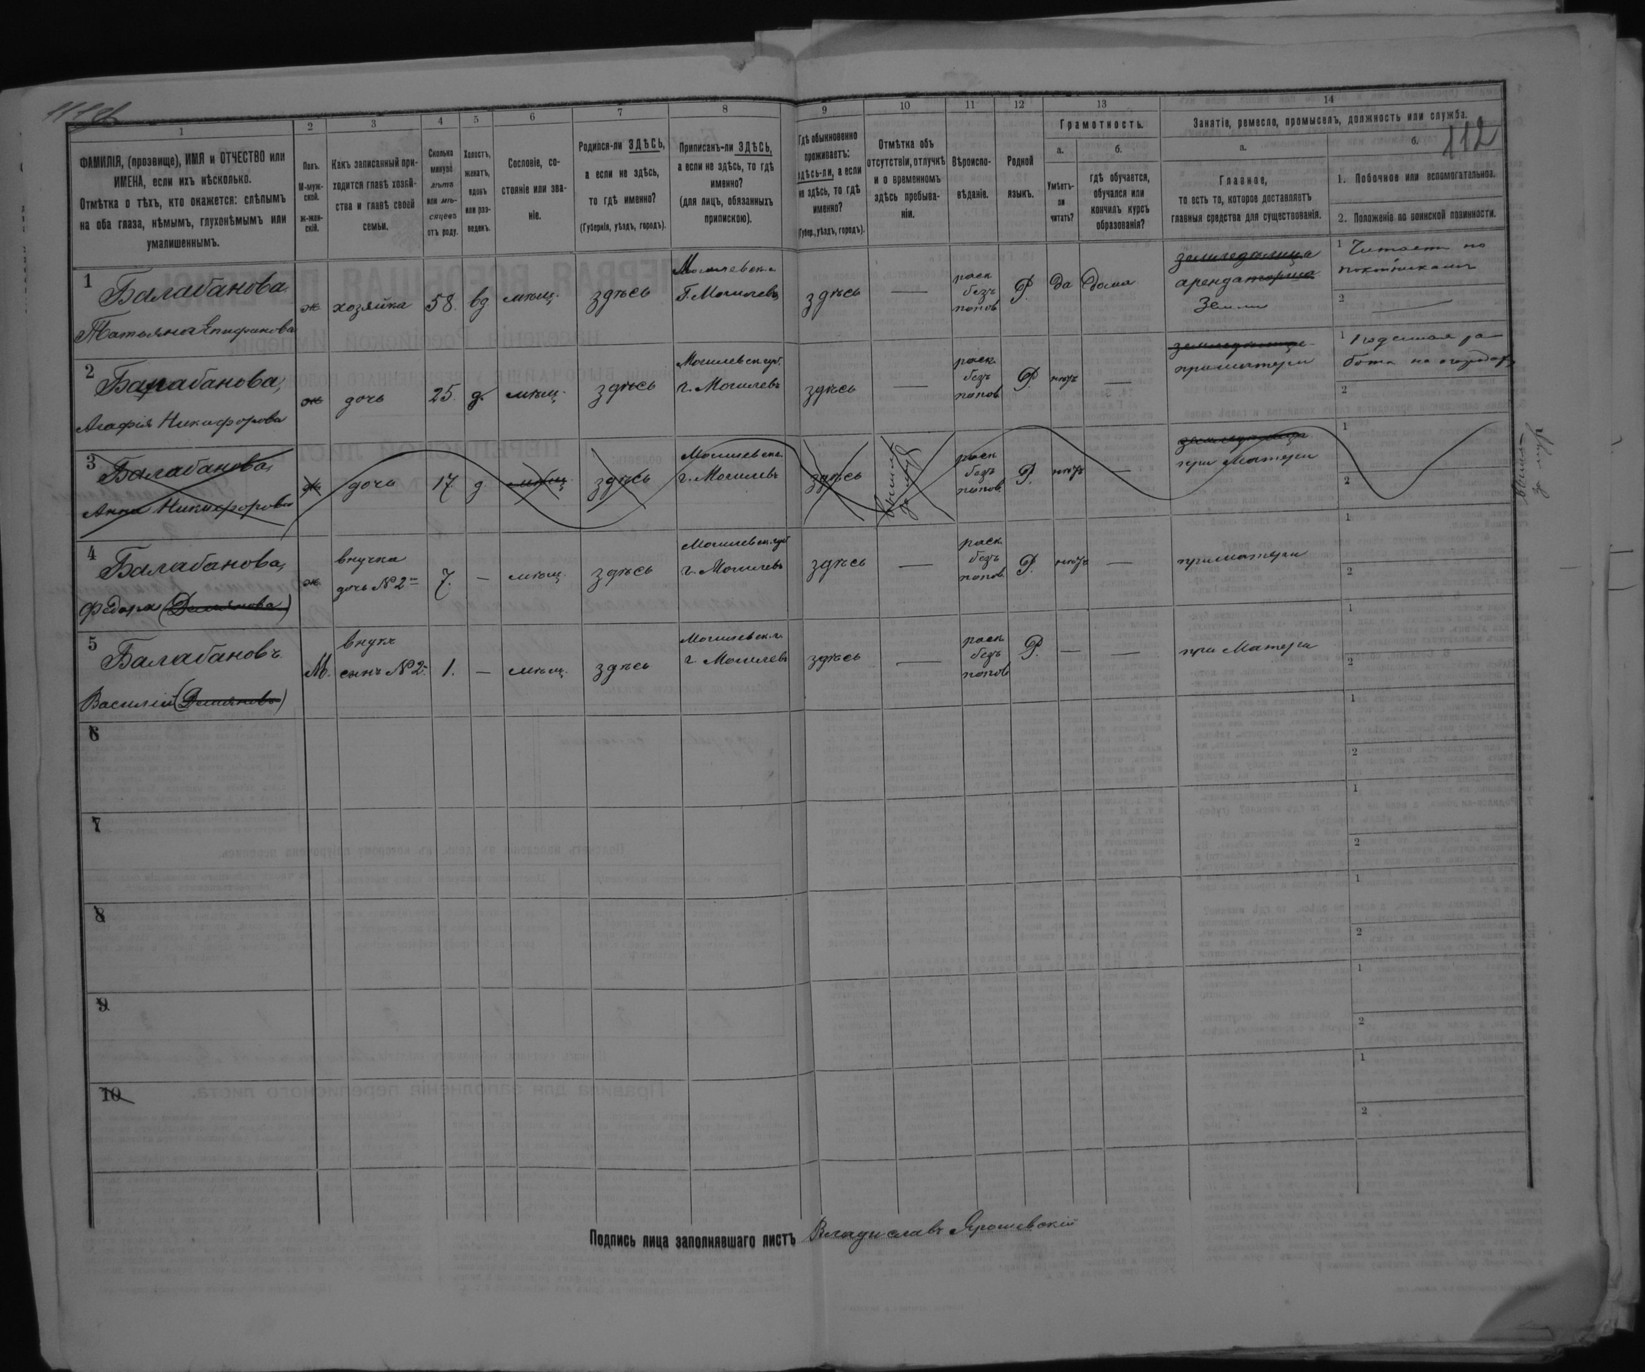 112
1
2
3
4
5
6
7
8
9
10
11
12
13
14
ФАМИЛІЯ, (прозвище), ИМЯ и ОТЧЕСТВО или
ИМЕНА, если ихъ нѣсколько.
Отмѣтка о тѣхъ, кто окажется: слѣпымъ
на оба глаза, нѣмымъ, глухонѣмымъ или
умалишеннымъ.
Полъ.
М-муж-
ской.
Ж-жен-
скій.
Какъ записанный при-
ходится главѣ хозяй-
ства и главѣ своей
семьи.
Сколько
минуло
лѣтъ
или мѣ-
сяцевъ
отъ роду.
Холостъ,
женатъ,
вдовъ
или раз-
веденъ.
Сословіе, со-
стояніе или зва-
ніе.
Родился-ли ЗДѢСЬ,
а если не здѣсь,
то гдѣ именно?
(Губернія, уѣздъ, городъ).
Приписанъ-ли ЗДѢСЬ,
а если не здѣсь, то гдѣ
именно?
(для лицъ, обязанныхъ
припискою).
Гдѣ обыкновенно
проживаетъ:
здѣсь-ли, а если
не здѣсь, то гдѣ
именно?
(Губер., уѣздъ, городъ).
Отмѣтка объ
отсутствіи, отлучкѣ
и о временномъ
здѣсь пребыва-
ніи.
Вѣроиспо-
вѣданіе.
Родной
языкъ.
Грамотность.
а.
Умѣетъ-
ли
читать?
б.
гдѣ обучается,
обучался или
кончилъ курсъ
образованія?
Занятіе, ремесло, промыселъ, должность или служба.
а.
Главное,
то есть то, которое доставляетъ
главныя средства для существованія.
б.
1. Побочное или вспомогательное.
2. Положеніе по воинской повинности.
1 Балабанова
Татьяна Епифанова
ж
хозяйка
58.
вд
мѣщ.
здѣсь
Могилевска
Г. Могилевъ
здѣсь
—
раск.
безъ
поповъ
Р.
да
дома
земледѣлица
арендаторша
Земли
1 Читаетъ по
покойникамъ
2 —
2 Балабанова,
Агафія Никифорова
ж
дочь
25.
д.
мѣщ.
здѣсь
Могилевск. губ.
г. Могилевъ
здѣсь
—
раск.
безъ
поповъ
Р.
нѣтъ
—
земледѣлица
при матери
1 Поденная ра-
бота на огородах
2
3 Балабанова,
Анна Никифорова
ж
дочь
17
д
мѣщ
здѣсь
Могилевск.
г. Могилевъ
здѣсь
вышла
за мужъ
раск
безъ
поповъ
Р.
нѣтъ
—
земледѣлица
при Матери
1
2
вышла
за мужъ
4 Балабанова,
Ѳедора (Демьянова)
ж
внучка
дочь №2
7.
—
мѣщ.
здѣсь
Могилевск. губ
г. Могилевъ
здѣсь
—
раск
безъ
поповъ
Р.
нѣтъ
—
при матери
1
2
5 Балабановъ
Василій (Демьяновъ)
М.
внукъ
сынъ №2
1.
—
мѣщ.
здѣсь
Могилевск. г.
г Могилевъ
здѣсь
—
раск
безъ
поповъ
Р.
—
—
при Матери
1
2
6
1
2
7
1
2
8
1
2
9
1
2
10
1
2
Подпись лица заполнявшаго листъ Владиславъ Ярошевскій